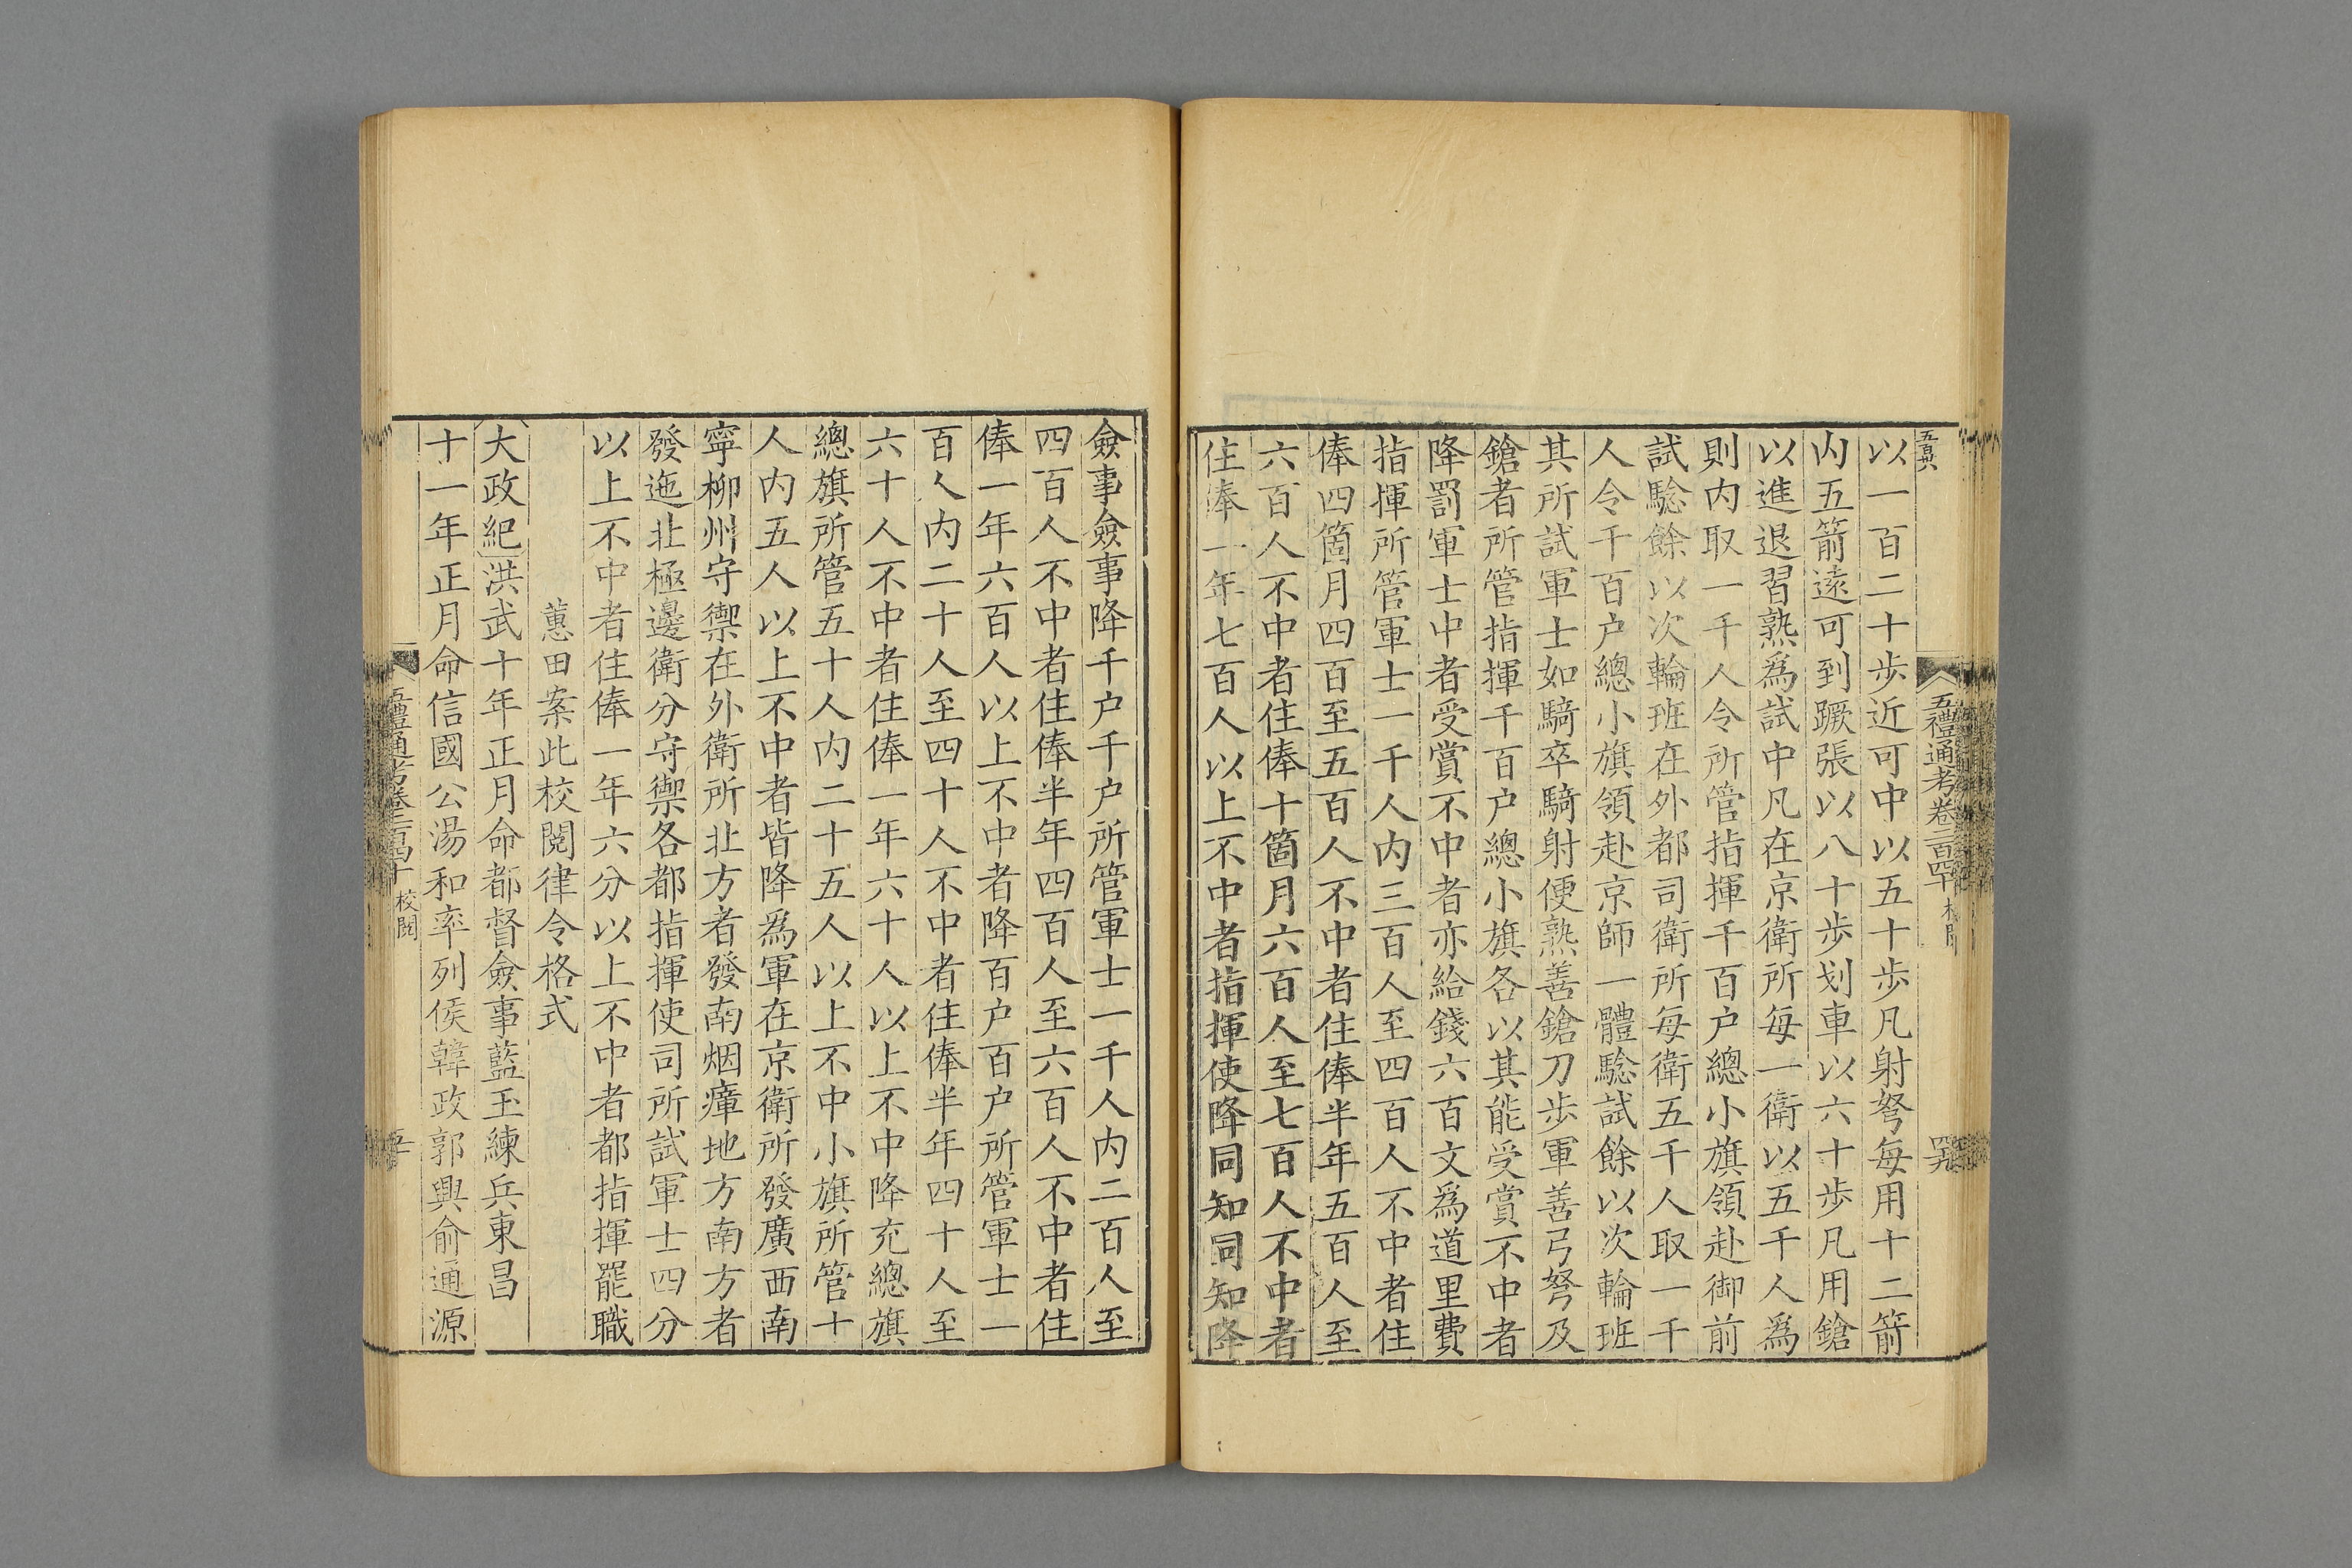 五禮通考卷二百四十
以一百二十歩近可中以五十歩凡射弩每用十二箭
内五箭遠可到蹶張以八十歩划車以六十歩凡用鎗
以進退習熟爲試中凡在京衛所每一衛以五千人爲
則内取一千人令所管指揮千百户總小旗領赴御前
試騐餘以次輪班在外都司衛所每衛五千人取一千
人令千百户總小旗領赴京師一體騐試餘以次輪班
其所試軍士如騎卒騎射便熟善鎗刀歩軍善弓弩及
鎗者所管指揮千百户總小旗各以其能受賞不中者
降罰軍士中者受賞不中者亦給錢六百文爲道里費
指揮所管軍士一千人内三百人至四百人不中者住
俸四箇月四百至五百人不中者住俸半年五百人至
六百人不中者住俸十箇月六百人至七百人不中者
住俸一年七百人以上不中者指揮使降同知同知降
僉事僉事降千户千户所管軍士一千人内二百人至
四百人不中者住俸半年四百人至六百人不中者住
俸一年六百人以上不中者降百户百户所管軍士一
百人内二十人至四十人不中者住俸半年四十人至
六十人不中者住俸一年六十人以上不中降充總旗
總旗所管五十人内二十五人以上不中小旗所管十
人内五人以上不中者皆降爲軍在京衛所發廣西南
寧柳州守禦在外衛所北方者發南烟瘴地方南方者
發迤北極邊衛分守禦各都指揮使司所試軍士四分
以上不中者住俸一年六分以上不中者都指揮罷職
蕙田案此校閱律令格式
大政紀洪武十年正月命都督僉事藍玉練兵東昌
十一年正月命信國公湯和率列侯韓政郭興俞通源
五禮通考卷二百四十 校閱